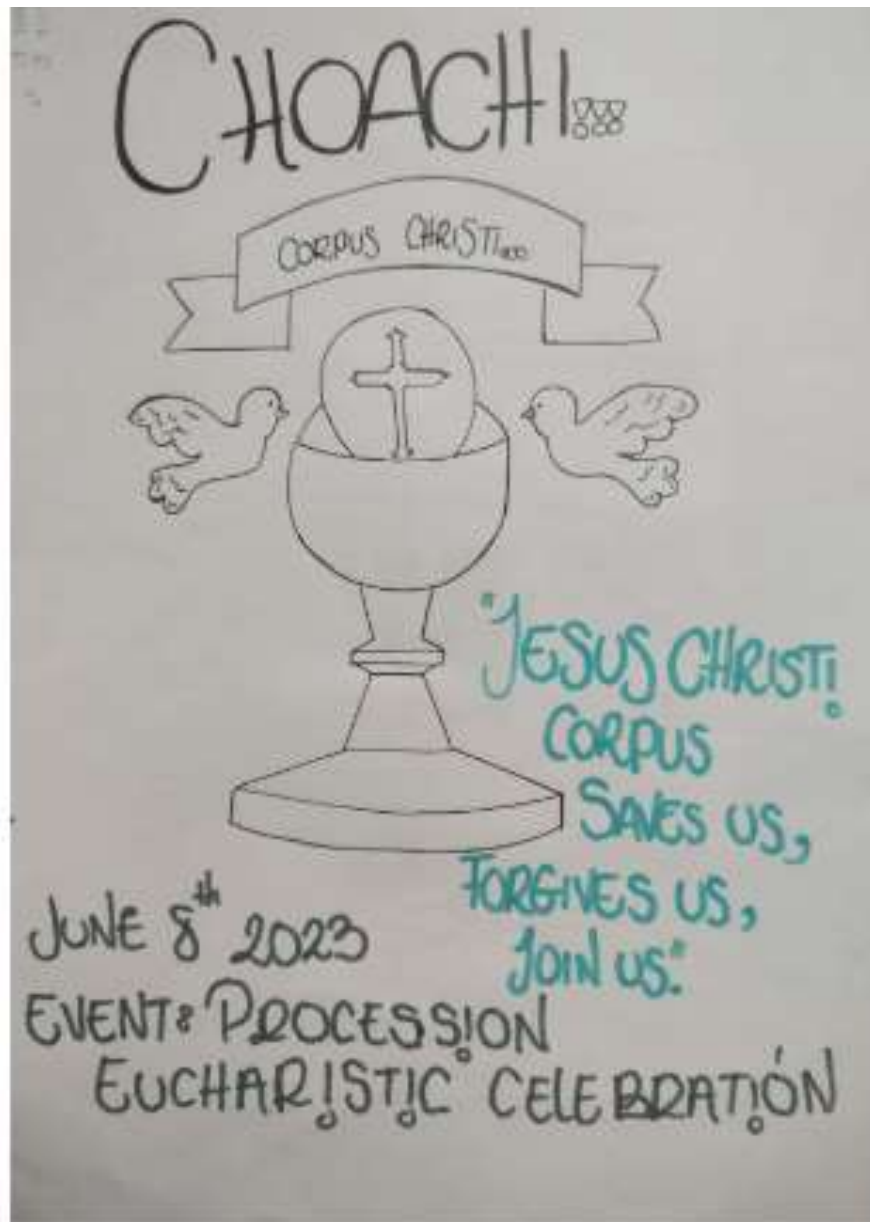 CHOACHI!!!
CORPUS CHRISTI...
"JESUS CHRISTI
CORPUS
SAVES US,
FORGIVES US,
JOIN US."
JUNE 8th 2023
EVENT: PROCESSION
EUCHARISTIC CELEBRATIÓN